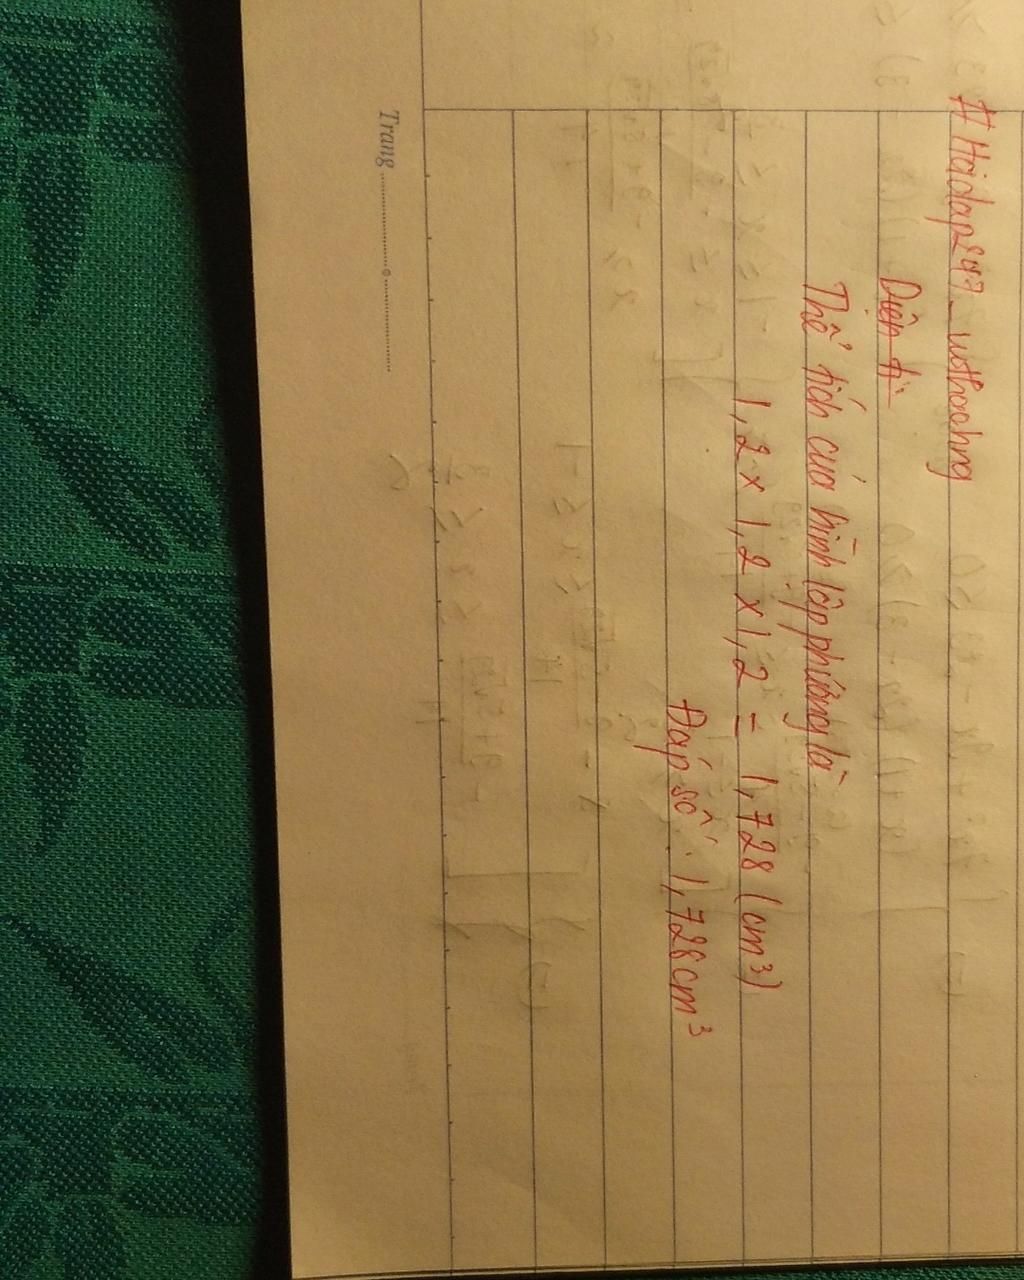 # Hoidap247_wothoahng
Diện ti
Thể tích của hình lập phương là
1,2 x 1,2 x 1,2 = 1,728 (cm³)
Đáp số: 1,728cm³
Trang